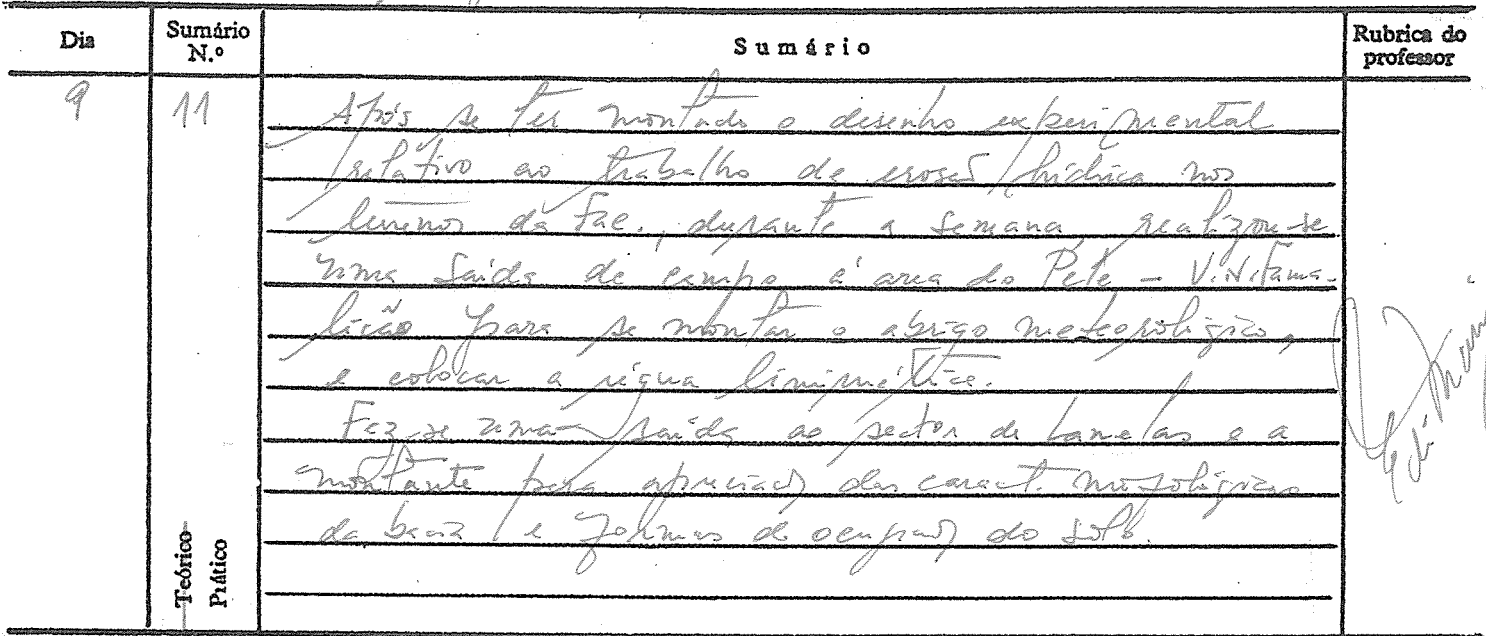 Dia
Sumário N.º
Sumário
Rubrica do professor
9
11
Após se ter montado o desenho experimental
relativo ao trabalho de erosão hídrica nos
terrenos da Fac., durante a semana, realizou-se
uma saída de campo à area do Pele - V.N. Fama-
licão para se montar o abrigo meteorológico,
e colocar a régua limnimétrica.
Fez-se uma saída ao sector de Lamelas e a
montante para apreciação das caract. morfológicas
da bacia e formas de ocupação do solo.
Teórico
Prático